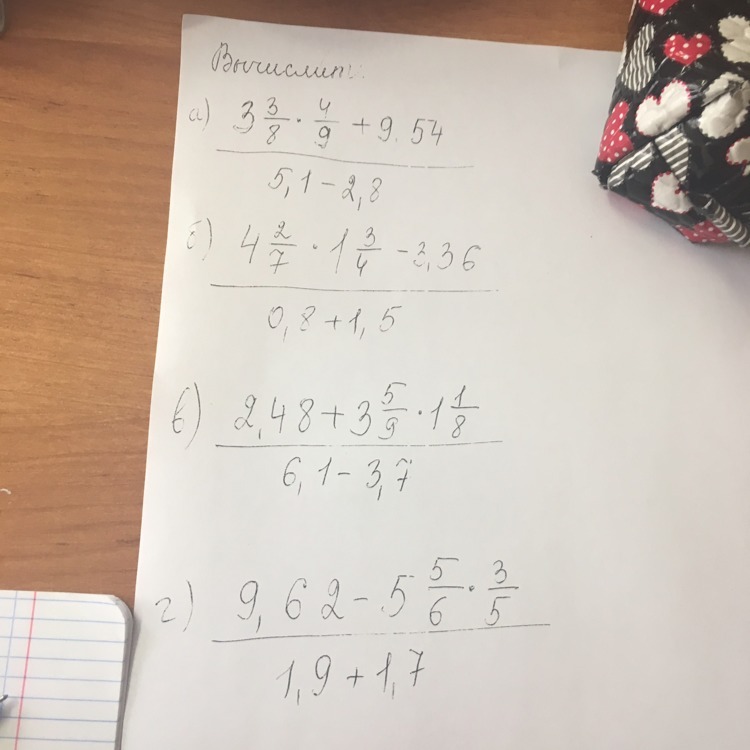 Вычислить:
а) 3 3/8 · 4/9 + 9,54
5,1 - 2,8
б) 4 2/7 · 1 3/4 - 2,36
0,8 + 1,5
в) 2,48 + 3 5/9 · 1 1/8
6,1 - 3,7
г) 9,62 - 5 5/6 · 3/5
1,9 + 1,7